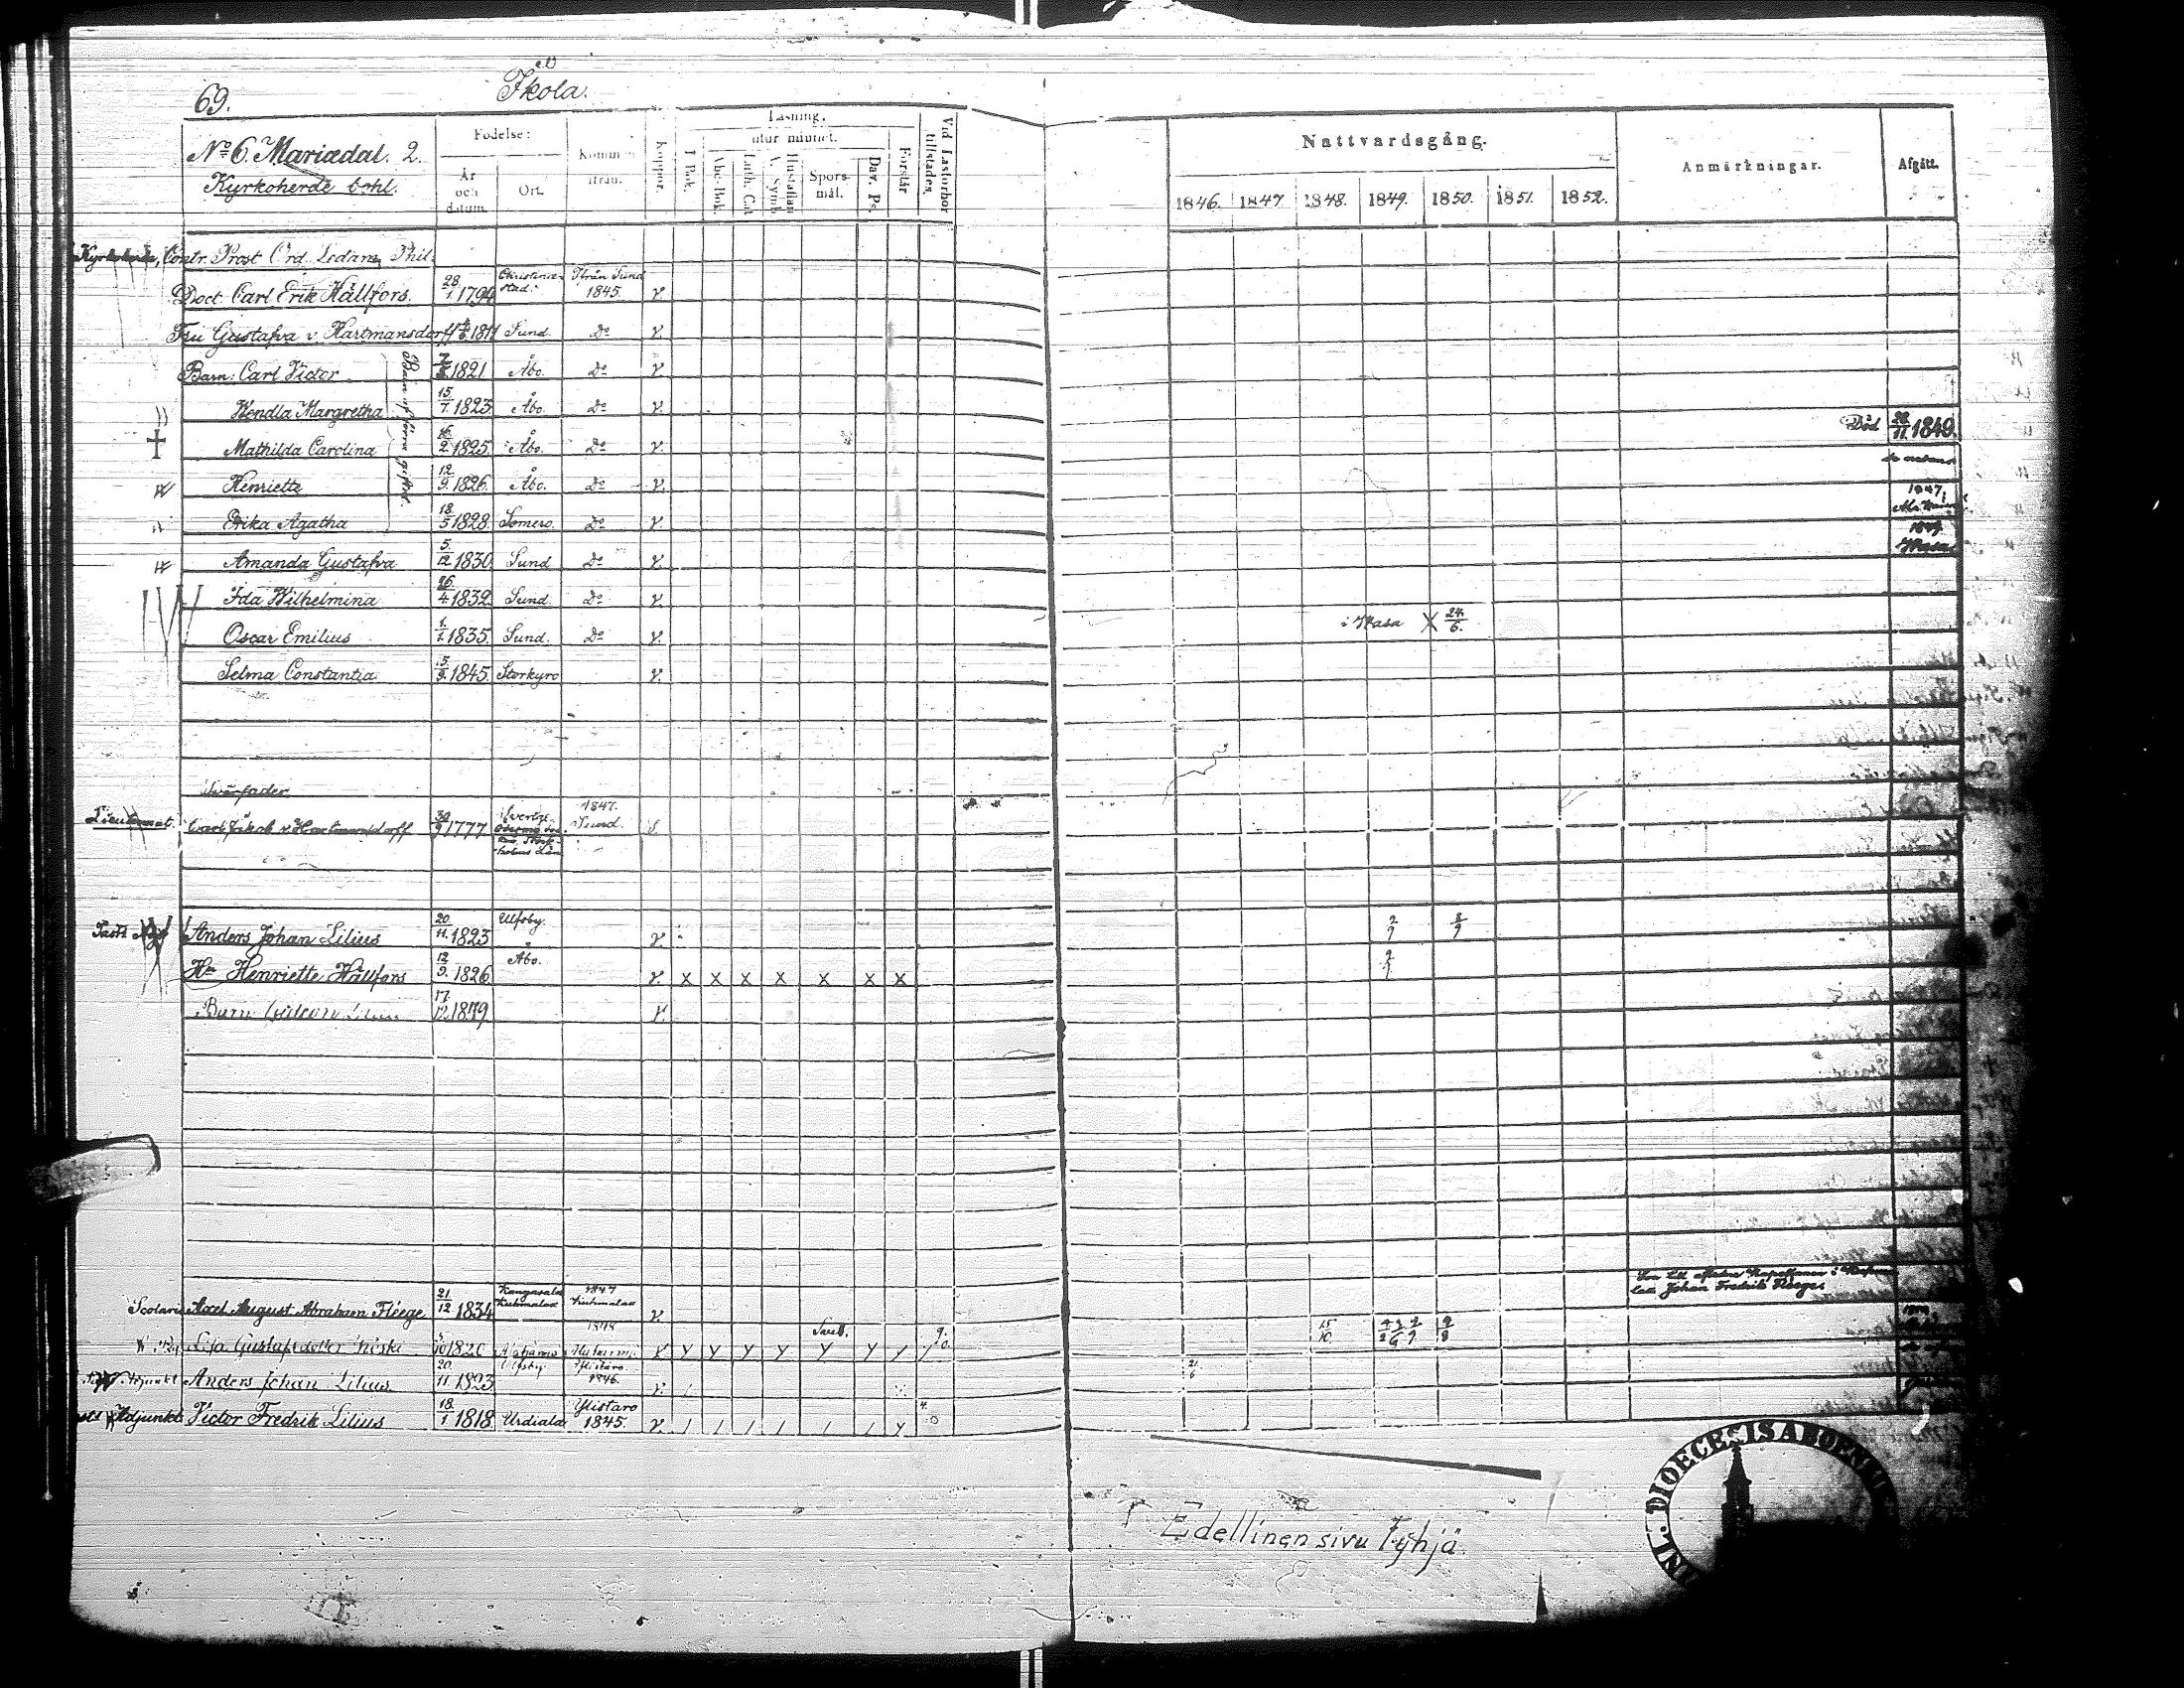 69.
Ikola.
No 6. Mariædal. 2.
Kyrkoherde bohl.
Födelse:
År och datum.
Ort.
Kommen ifrån.
Koppor.
Läsning,
utur minnet.
I Bok.
Abc-Bok.
Luth. Cat
Hustaflan A. Symb.
Spörs-mål.
Dav. Ps.
Förstår
Vid Läsförhör tillstädes.
Nattvardsgång.
1846. 1847 1848. 1849. 1850. 1851. 1852.
Anmärkningar.
Afgått.
Kyrkoherde, Contr. Prost Ord. Ledam. Phil.
Doct. Carl Erik Hällfors. 28/1 1794 Christinæstad. Ifrån Sund 1845. v.
Fru Gustafva v. Hartmansdorff 1811 Sund. Do v.
Barn: Carl Victor 1821 Åbo. Do v.
Barn af förra giftet.
Hendla Margretha 15/7. 1823. Åbo. Do v.
Mathilda Carolina 16/2. 1825. Åbo. Do v. Död 28/11 1849.
Henriette 12/9. 1826. Åbo. Do v.
Erika Agatha 18/5 1828. Somero. Do v. 1847.
Amanda Gustafva 5/12 1830 Sund Do v. 1849. Wasa
Ida Wilhelmina 26/4 1832 Sund. Do v.
Oscar Emilius 1/1. 1835. Sund. Do v. i Wasa X 24/6.
Selma Constantia 15/9. 1845. Storkyro v.
Svärfader
Lieutenant. Carl Jakob v. Hartmansdorff 30/9 1777 Sverige 1847. Sund.
Anders Johan Lilius 20/11. 1823 Ulfsby. v. 2/9 8/9
Hu Henriette Hällfors 12/9. 1826 Åbo. v. x x x x x x x
Barn 17/12 1849 v.
Son till Johan Fredrik Fléege.
Scolaris Axel August Abraham Fléege 21/12 1834 Kangasala Kuhmalax 1847 Kuhmalax v.
Lisa Gustafsdotter 1820 1848 15/10.
Adjunkt Anders Johan Lilius 20/11 1823 Ulfsby Ylistaro 1846. v.
Adjunkt Victor Fredrik Lilius 18/1 1818 Urdiala Ylistaro 1845. v.
Edellinen sivu Tyhjä.
DIOECESIS ABOEN